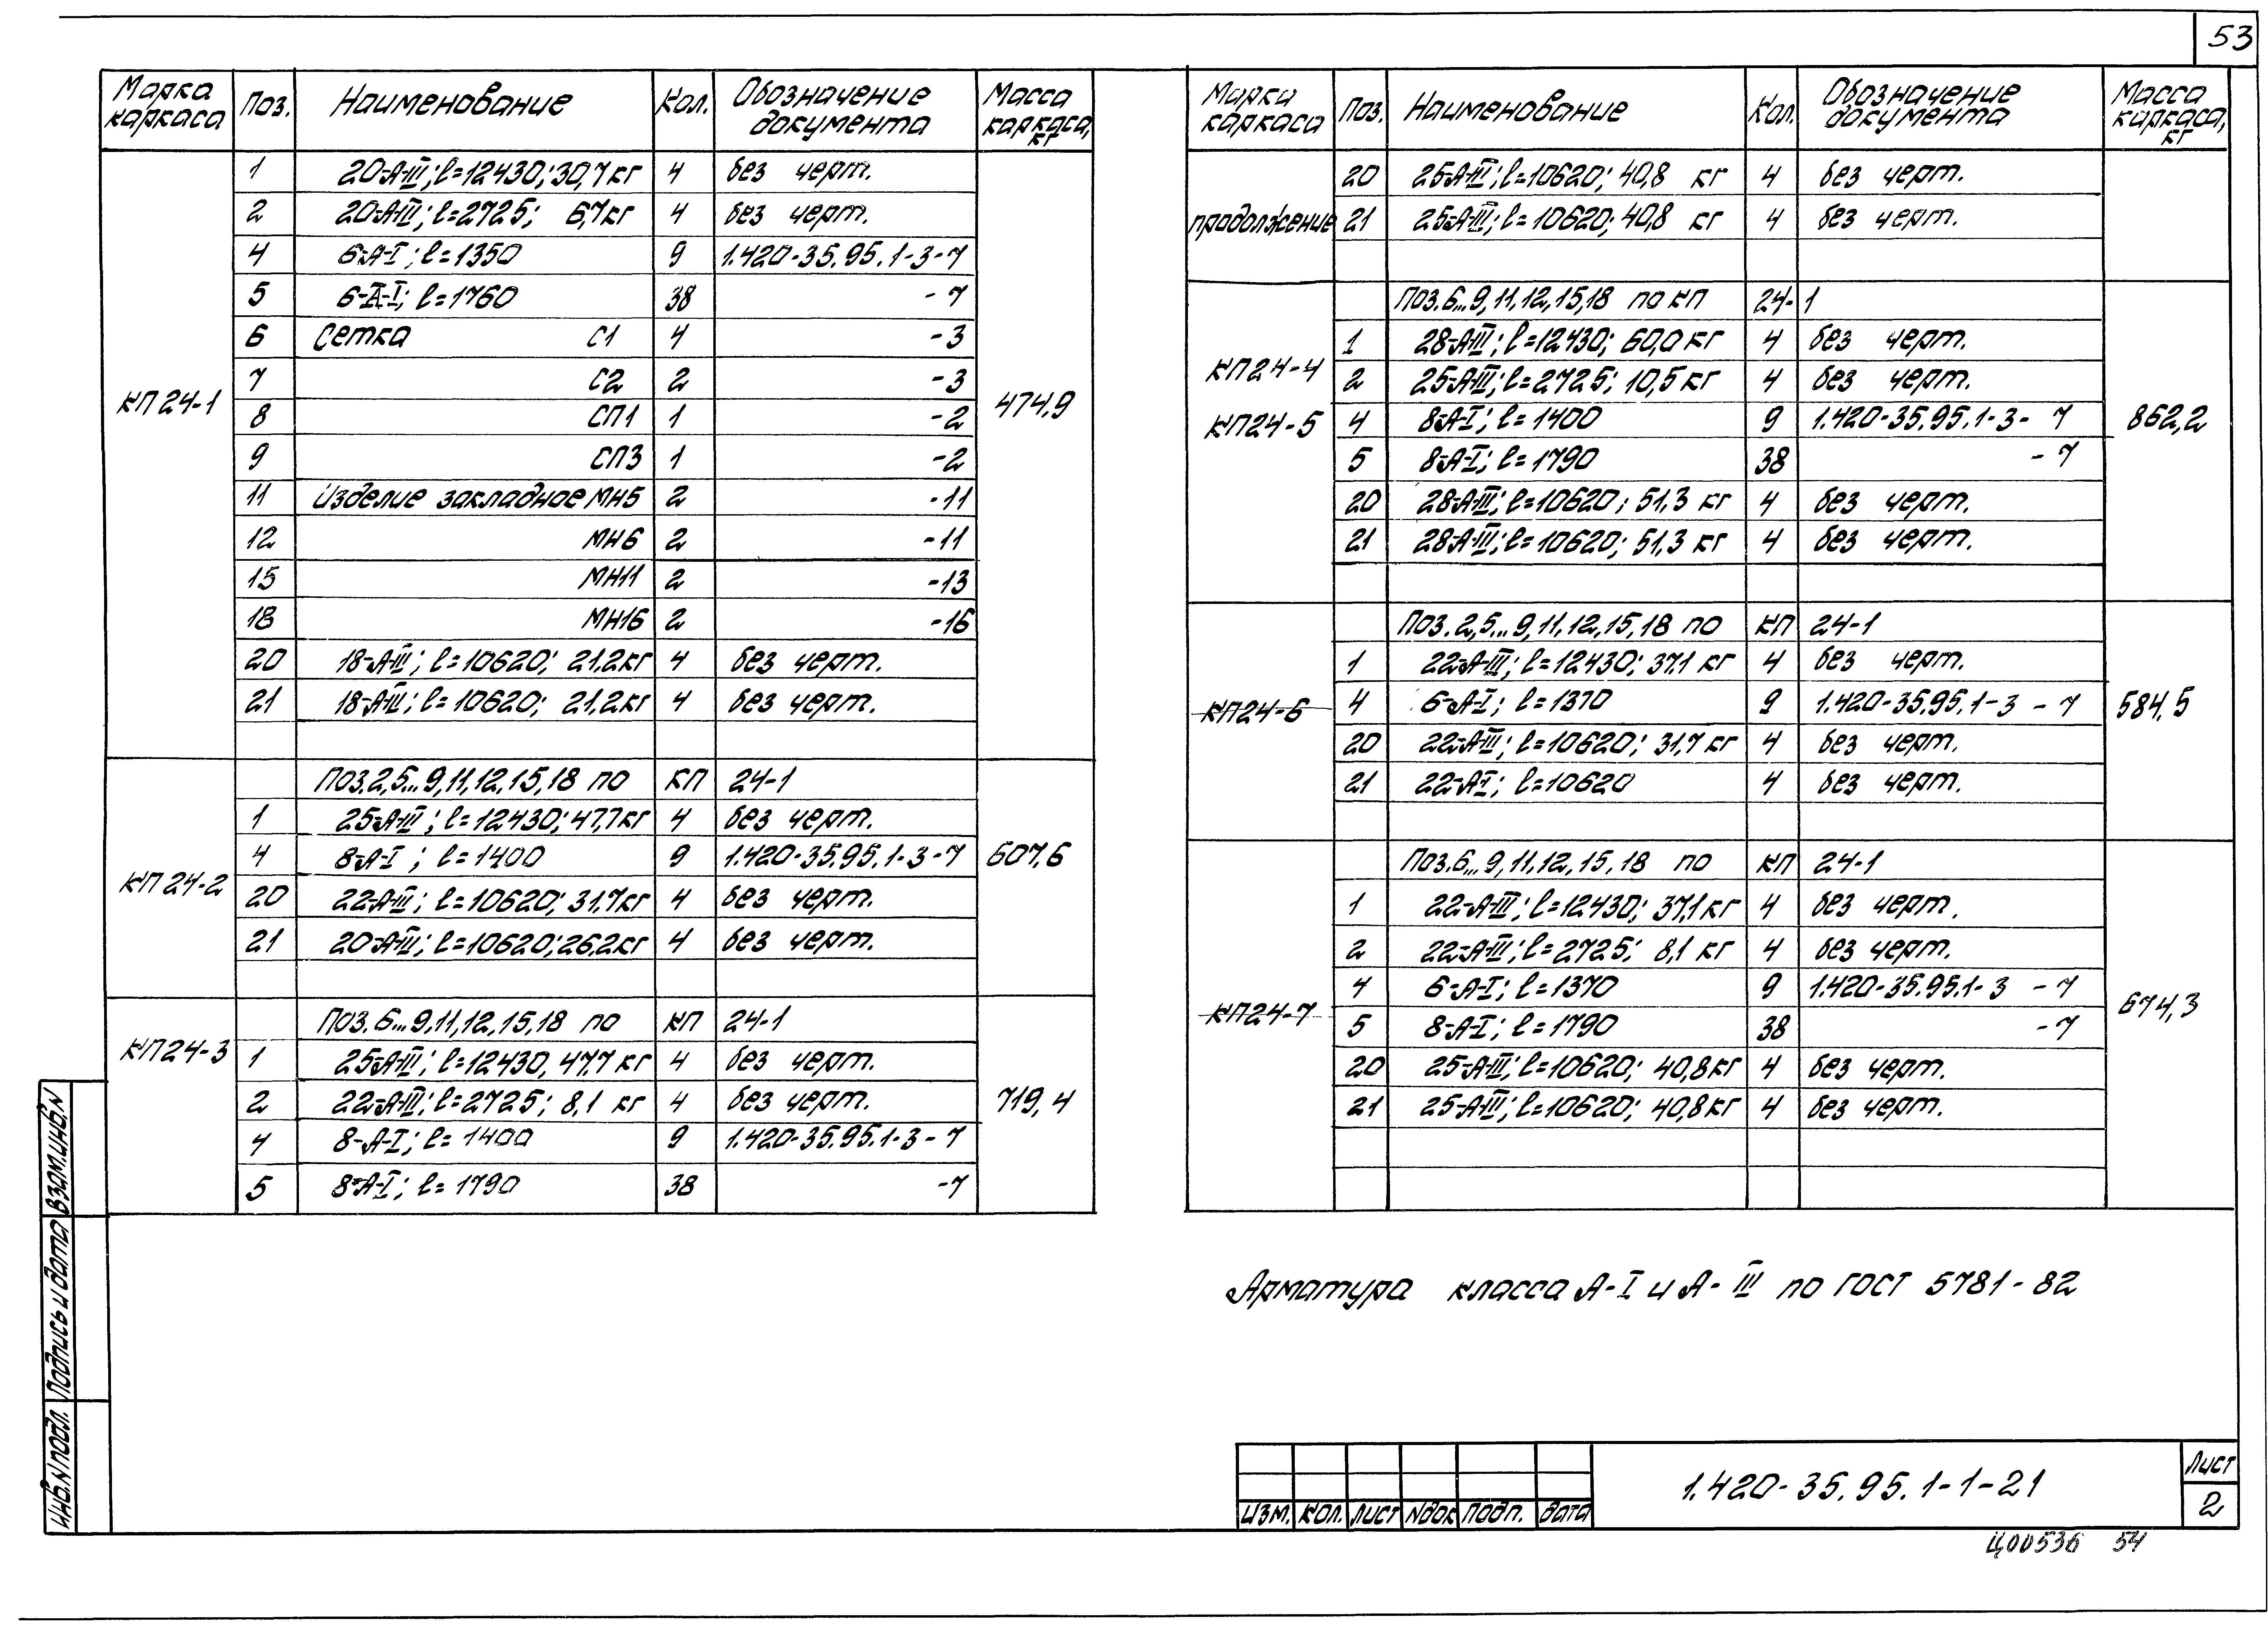 53
Марка каркаса Поз. Наименование Кол. Обозначение документа Масса каркаса, кг
КП24-1 474,9
1 20-А-III; ℓ=12430; 30,7кг 4 без черт.
2 20-А-III; ℓ=2725; 6,7кг 4 без черт.
4 6-А-I; ℓ=1350 9 1.420-35.95.1-3-7
5 6-А-I; ℓ=1760 38 -7
6 Сетка С1 4 -3
7 С2 2 -3
8 СП1 1 -2
9 СП3 1 -2
11 Изделие закладное МН5 2 -11
12 МН6 2 -11
15 МН11 2 -13
18 МН16 2 -16
20 18-А-III; ℓ=10620; 21,2кг 4 без черт.
21 18-А-III; ℓ=10620; 21,2кг 4 без черт.
КП24-2 607,6
Поз.2,5...9,11,12,15,18 по КП 24-1
1 25-А-III; ℓ=12430; 47,7кг 4 без черт.
4 8-А-I; ℓ=1400 9 1.420-35.95.1-3-7
20 22-А-III; ℓ=10620; 31,7кг 4 без черт.
21 20-А-III; ℓ=10620; 26,2кг 4 без черт.
КП24-3 719,4
Поз.6...9,11,12,15,18 по КП 24-1
1 25-А-III; ℓ=12430, 47,7 кг 4 без черт.
2 22-А-III; ℓ=2725; 8,1 кг 4 без черт.
4 8-А-I; ℓ=1400 9 1.420-35.95.1-3-7
5 8-А-I; ℓ=1790 38 -7
Марка каркаса Поз. Наименование Кол. Обозначение документа Масса каркаса, кг
продолжение
20 25-А-III; ℓ=10620; 40,8 кг 4 без черт.
21 25-А-III; ℓ=10620; 40,8 кг 4 без черт.
КП24-4
КП24-5 862,2
Поз.6...9,11,12,15,18 по КП 24-1
1 28-А-III; ℓ=12430; 60,0 кг 4 без черт.
2 25-А-III; ℓ=2725; 10,5 кг 4 без черт.
4 8-А-I; ℓ=1400 9 1.420-35.95.1-3-7
5 8-А-I; ℓ=1790 38 -7
20 28-А-III; ℓ=10620; 51,3 кг 4 без черт.
21 28-А-III; ℓ=10620; 51,3 кг 4 без черт.
КП24-6 584,5
Поз.2,5...9,11,12,15,18 по КП 24-1
1 22-А-III; ℓ=12430; 37,1 кг 4 без черт.
4 6-А-I; ℓ=1370 9 1.420-35.95.1-3-7
20 22-А-III; ℓ=10620; 31,7 кг 4 без черт.
21 22-А-I; ℓ=10620 4 без черт.
КП24-7 674,3
Поз.6...9,11,12,15,18 по КП 24-1
1 22-А-III; ℓ=12430; 37,1кг 4 без черт.
2 22-А-III; ℓ=2725; 8,1 кг 4 без черт.
4 6-А-I; ℓ=1370 9 1.420-35.95.1-3-7
5 8-А-I; ℓ=1790 38 -7
20 25-А-III; ℓ=10620; 40,8кг 4 без черт.
21 25-А-III; ℓ=10620; 40,8кг 4 без черт.
Арматура класса А-I и А-III по ГОСТ 5781-82
Взам.инв.N
Подпись и дата
Инв.N подл.
Изм. Кол. Лист Nдок Подп. Дата
1.420-35.95.1-1-21
Лист
2
Ц00536 54